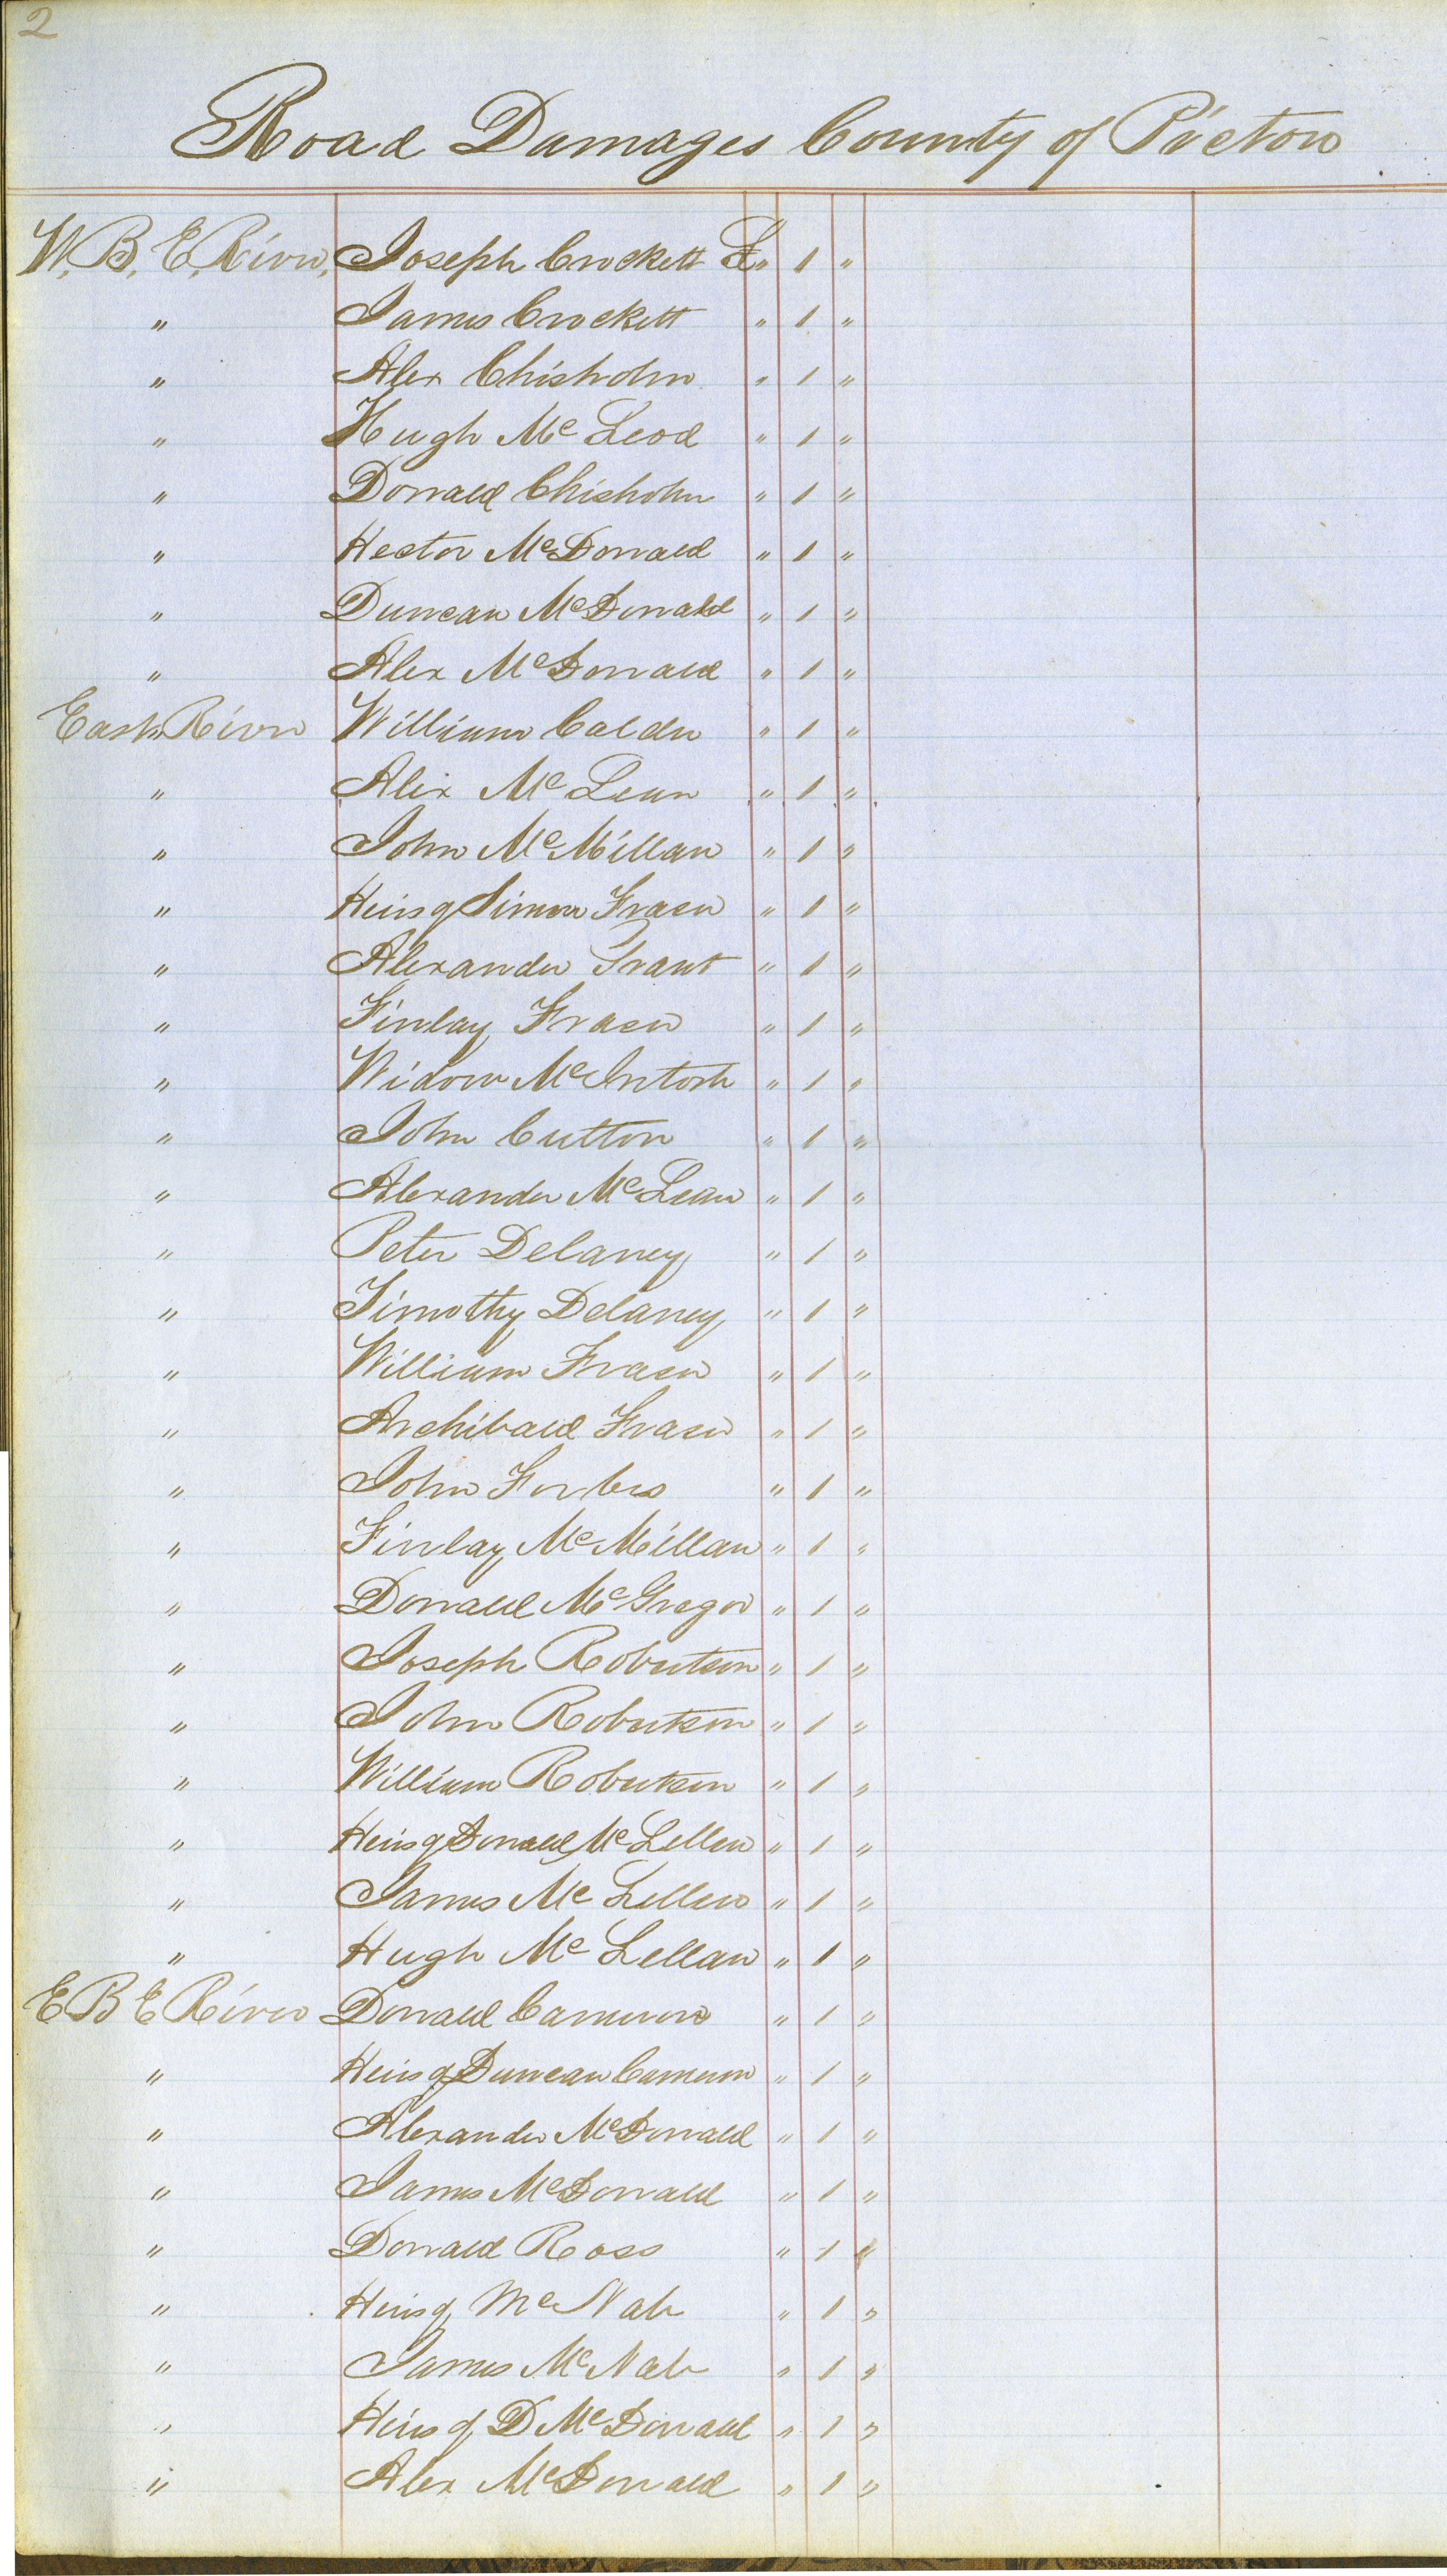 2
Road Damages County of Pictou
W. B. E. River, Joseph Crockett £ " 1 "
" James Crockett " 1 "
" Alex Chisholm " 1 "
" Hugh McLeod " 1 "
" Donald Chisholm " 1 "
" Hector McDonald " 1 "
" Duncan McDonald " 1 "
" Alex McDonald " 1 "
East River William Calder " 1 "
" Alex McLean " 1 "
" John McMillan " 1 "
" Heirs of Simon Fraser " 1 "
" Alexander Grant " 1 "
" Finlay Fraser " 1 "
" Widow McIntosh " 1 "
" John Cutton " 1 "
" Alexander McLean " 1 "
" Peter Delaney " 1 "
" Timothy Delaney " 1 "
" William Fraser " 1 "
" Archibald Fraser " 1 "
" John Forbes " 1 "
" Finlay McMillan " 1 "
" Donald McGregor " 1 "
" Joseph Robertson " 1 "
" John Robertson " 1 "
" William Robertson " 1 "
" Heirs of Donald McLellen " 1 "
" James McLellen " 1 "
" Hugh McLellan " 1 "
E B E River Donald Cameron " 1 "
" Heirs of Duncan Cameron " 1 "
" Alexander McDonald " 1 "
" James McDonald " 1 "
" Donald Ross " 1 "
" Heirs of McNab " 1 "
" James McNab " 1 "
" Heirs of D McDonald " 1 "
" Alex McDonald " 1 "